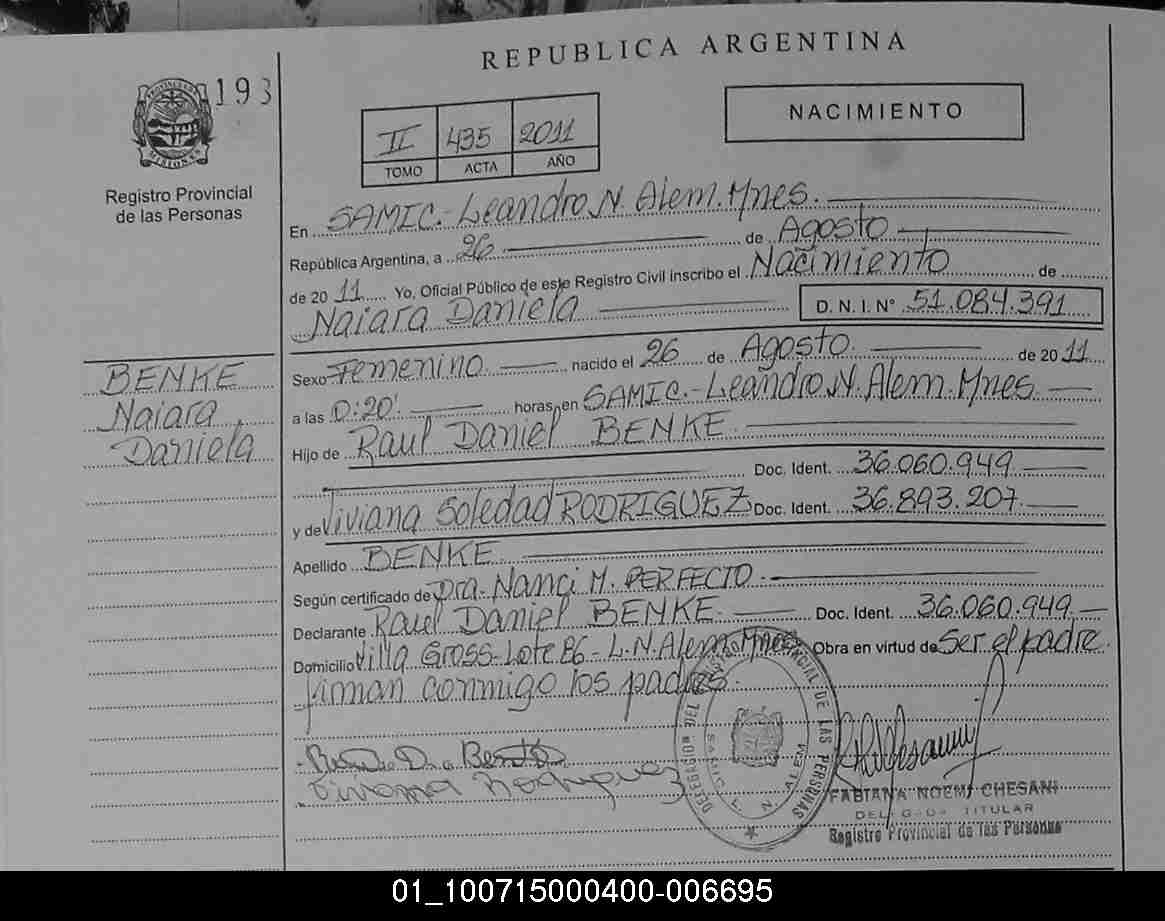 REPUBLICA ARGENTINA
193
PROVINCIA DE MISIONES
Registro Provincial
de las Personas
II 435 2011
TOMO ACTA AÑO
NACIMIENTO
En SAMIC.-Leandro N. Alem.Mnes.
República Argentina, a 26 de Agosto
de 2011 Yo, Oficial Público de este Registro Civil inscribo el Nacimiento de
Naiara Daniela D. N. I. N° 51.084.391
BENKE
Naiara
Daniela
Sexo Femenino nacido el 26 de Agosto. de 2011
a las 0:20' horas, en SAMIC.-Leandro N. Alem.Mnes.
Hijo de Raul Daniel BENKE.
Doc. Ident. 36.060.949
y de Viviana Soledad RODRIGUEZ Doc. Ident. 36.893.207
Apellido BENKE.
Según certificado de Dra. Nanci M. PERFECTO.
Declarante Raul Daniel BENKE. Doc. Ident. 36.060.949
Domicilio Villa Gross-Lote 86-L.N.Alem.Mnes. Obra en virtud de Ser el padre.
firman conmigo los padres.
Viviana Rodriguez
DELEGACION DEL REGISTRO PROVINCIAL DE LAS PERSONAS
SAMIC L. N. ALEM
FABIANA NOEMI CHESANI
TITULAR
Registro Provincial de las Personas
01_100715000400-006695